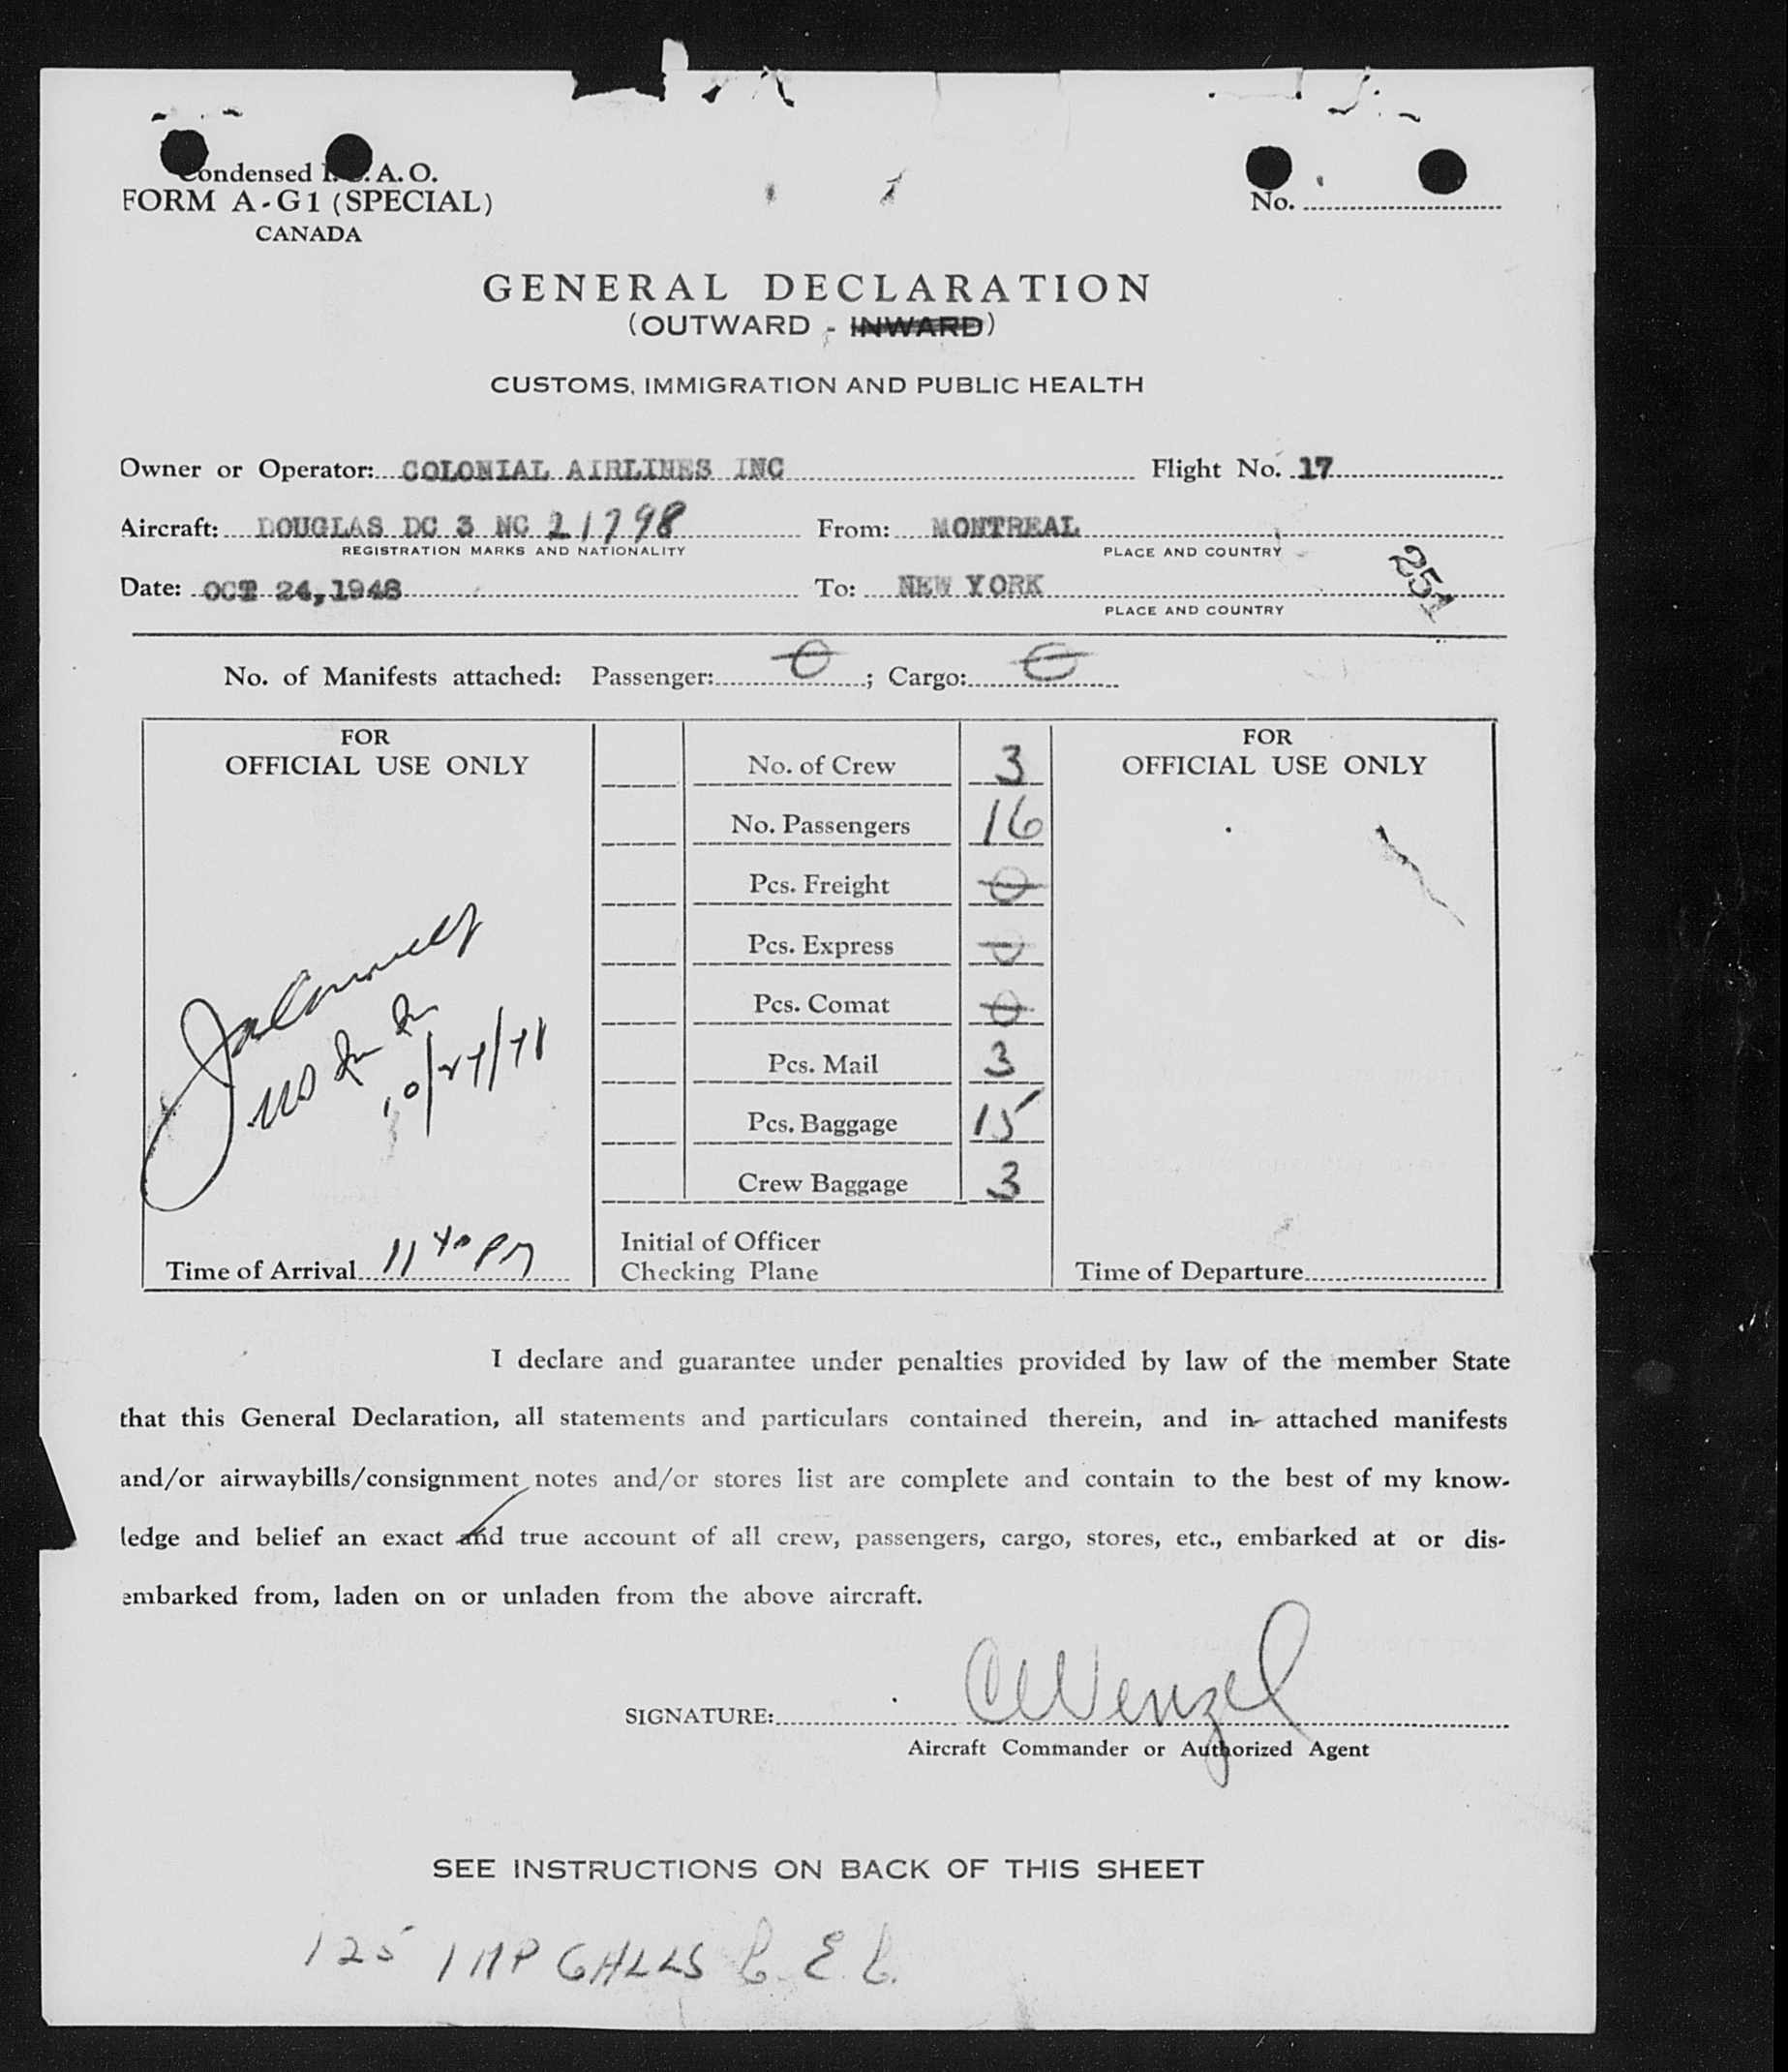 Condensed I.C.A.O.
FORM A-G1 (SPECIAL)
CANADA
No.
GENERAL DECLARATION
(OUTWARD - INWARD)
CUSTOMS, IMMIGRATION AND PUBLIC HEALTH
Owner or Operator: COLONIAL AIRLINES INC Flight No. 17
Aircraft: DOUGLAS DC 3 NC 21798 From: MONTREAL
REGISTRATION MARKS AND NATIONALITY PLACE AND COUNTRY
251
Date: OCT 24,1948 To: NEW YORK
PLACE AND COUNTRY
No. of Manifests attached: Passenger: 0; Cargo: 0
FOR
OFFICIAL USE ONLY
10/24/48
Time of Arrival 11 40 PM
No. of Crew 3
No. Passengers 16
Pcs. Freight 0
Pcs. Express 0
Pcs. Comat 0
Pcs. Mail 3
Pcs. Baggage 15
Crew Baggage 3
Initial of Officer
Checking Plane
FOR
OFFICIAL USE ONLY
Time of Departure
I declare and guarantee under penalties provided by law of the member State
that this General Declaration, all statements and particulars contained therein, and in attached manifests
and/or airwaybills/consignment notes and/or stores list are complete and contain to the best of my know-
ledge and belief an exact and true account of all crew, passengers, cargo, stores, etc., embarked at or dis-
embarked from, laden on or unladen from the above aircraft.
SIGNATURE: CWenzel
Aircraft Commander or Authorized Agent
SEE INSTRUCTIONS ON BACK OF THIS SHEET
125 IMP GALLS